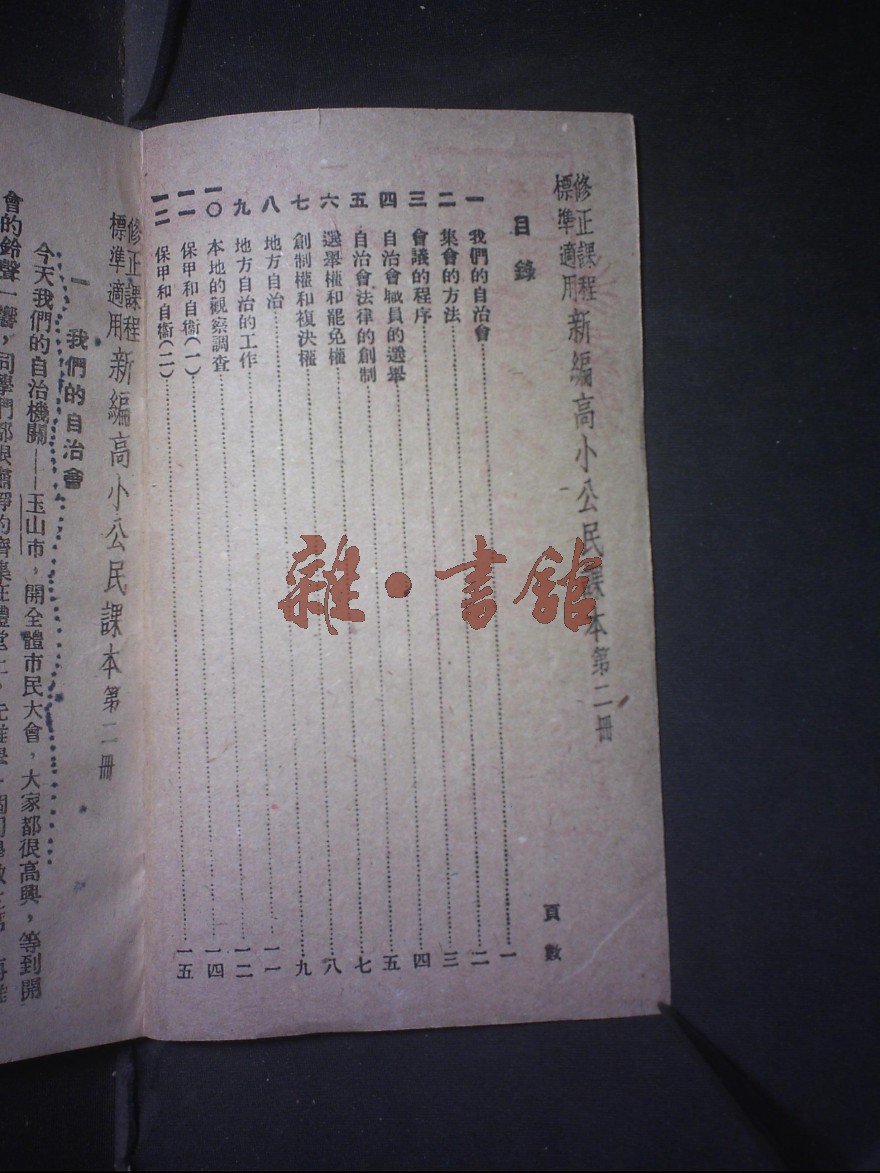 修正課程
標準適用 新編高小公民課本第二冊
目錄 頁數
一 我們的自治會 一
二 集會的方法 二
三 會議的程序 三
四 自治會職員的選舉 四
五 自治會法律的創制 五
六 選舉權和罷免權 七
七 創制權和複決權 八
八 地方自治 九
九 地方自治的工作 一一
一〇 本地的觀察調查 一二
一一 保甲和自衞(一) 一四
一二 保甲和自衞(二) 一五
雜·書館
修正課程
標準適用 新編高小公民課本第二冊
一 我們的自治會
今天我們的自治機關——玉山市，開全體市民大會，大家都很高興，等到開
會的鈴聲一響，同學們都很肅靜的齊集在禮堂上，